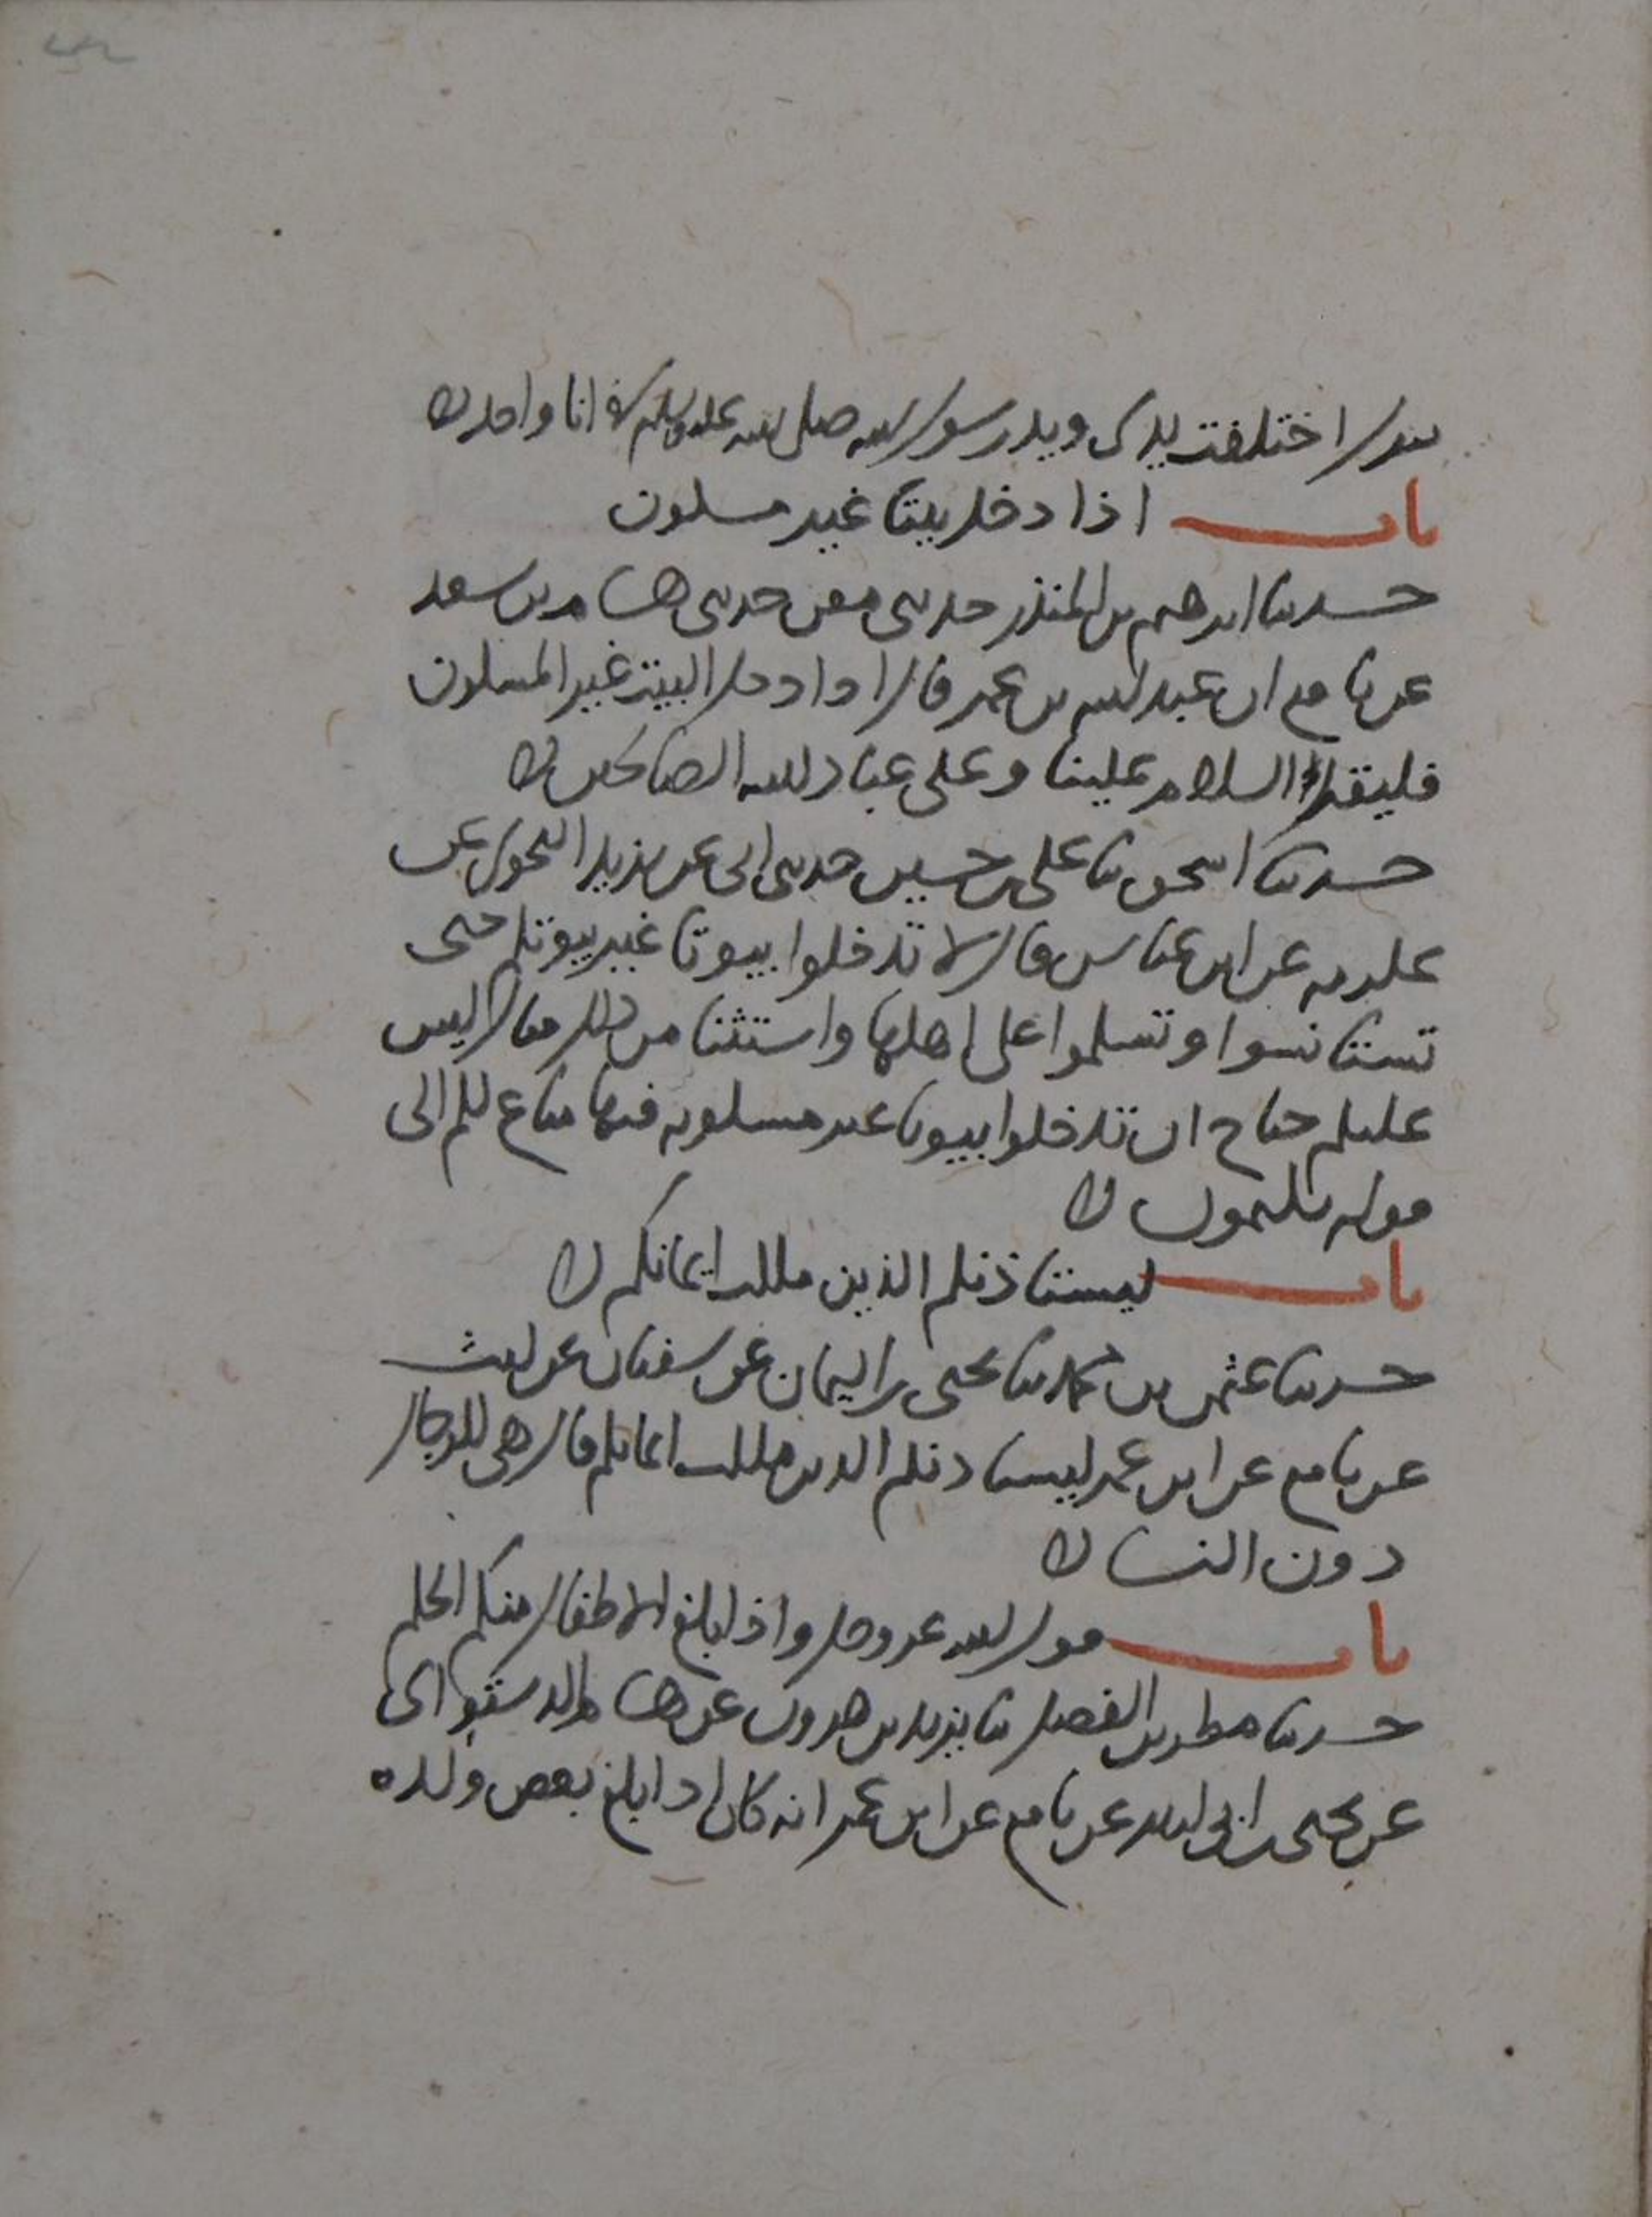 تقول اختلفت يدي ويد رسول الله صلى الله عليه وسلم في انا واحد
باب اذا دخل بيتا غير مسكون
حدثنا ابرهيم بن المنذر حدثني معن حدثني هشام بن سعد
عن نافع ان عبد الله بن عمر قال اذا دخل البيت غير المسكون
فليقل السلام علينا وعلى عباد الله الصالحين
حدثنا اسحق ثنا علي بن حسين حدثني ابي عن يزيد النحوي عن
عكرمه عن ابن عباس قال لا تدخلوا بيوتا غير بيوتكم حتى
تستانسوا وتسلموا على اهلها واستثنا من ذلك فقال ليس
عليكم جناح ان تدخلوا بيوتا غير مسكونه فيها متاع لكم الى
قوله تكتمون
باب ليستاذنكم الذين ملكت ايمانكم
حدثنا عثمن بن محمد ثنا يحيى بن اليمان عن سفيان عن ليث
عن نافع عن ابن عمر ليستاذنكم الذين ملكت ايمانكم قال هي للرجال
دون النسا
باب قول الله عز وجل واذا بلغ الاطفال منكم الحلم
حدثنا مطر بن الفضل ثنا يزيد بن هرون عن هشام الدستوائي
عن يحيى بن ابي كثير عن نافع عن ابن عمر انه كان اذا بلغ بعض ولده